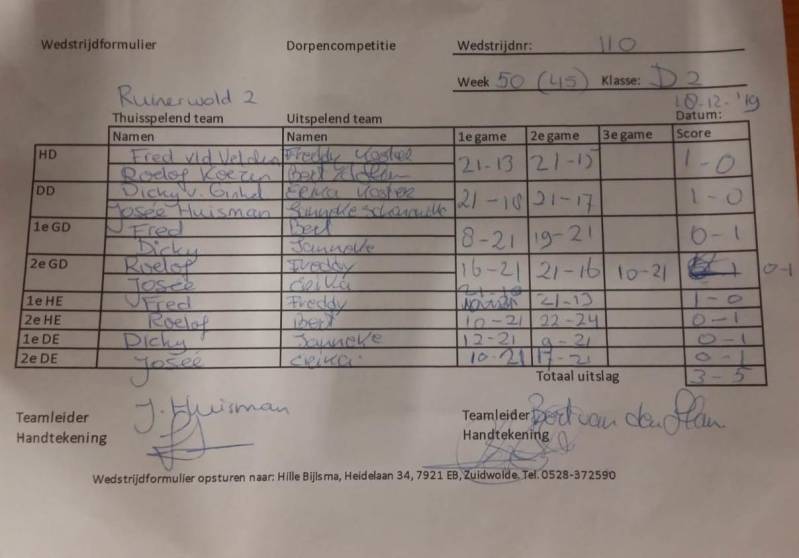 Wedstrijdformulier Dorpencompetitie Wedstrijdnr: 110
Week 50 (45) Klasse: D2
Ruinerwold 2 18-12-'19
Thuisspelend team Uitspelend team Datum:
Namen Namen 1e game 2e game 3e game Score
HD Fred v/d Velden Freddy Koster 21-13 21-15 1-0
Roelof Koezen Bert
DD Dicky v. Ginkel Erika Koster 21-18 21-17 1-0
Josée Huisman
1e GD Fred Bert 8-21 19-21 0-1
Dicky Janneke
2e GD Roelof Freddy 16-21 21-16 10-21 0-1
Josée Erika
1e HE Fred Freddy 21-13 1-0
2e HE Roelof Bert 10-21 22-24 0-1
1e DE Dicky Janneke 12-21 9-21 0-1
2e DE Josée Erika 10-21 17-21 0-1
Totaal uitslag 3-5
Teamleider J. Huisman Teamleider Bert van den
Handtekening Handtekening
Wedstrijdformulier opsturen naar: Hille Bijlsma, Heidelaan 34, 7921 EB, Zuidwolde. Tel. 0528-372590